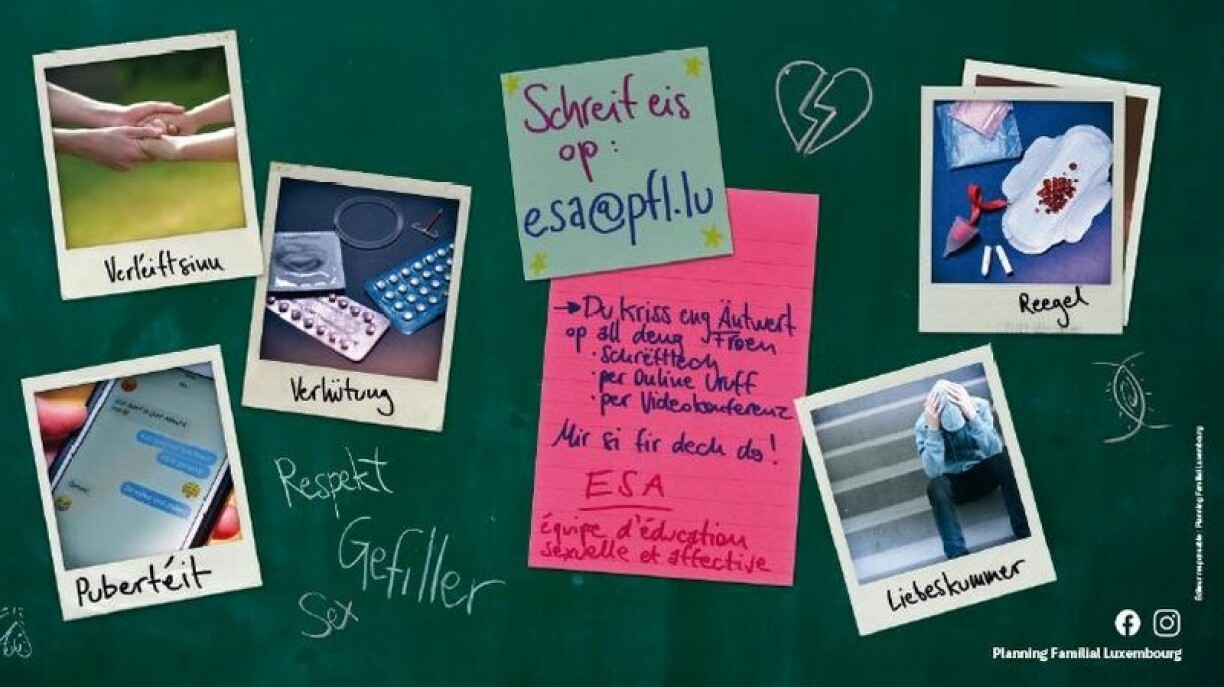 Schreif eis
op:
esa@pfl.lu
→ Du kriss eng Äntwert
op all deng Froen
· schrëftlech
· per Online Uruff
· per Videokonferenz
Mir si fir dech do!
ESA
équipe d'éducation
sexuelle et affective
Verléiftsinn
Verhütung
Pubertéit
Respekt
Gefiller
Sex
Reegel
Liebeskummer
Editeur responsable : Planning Familial Luxembourg
Planning Familial Luxembourg